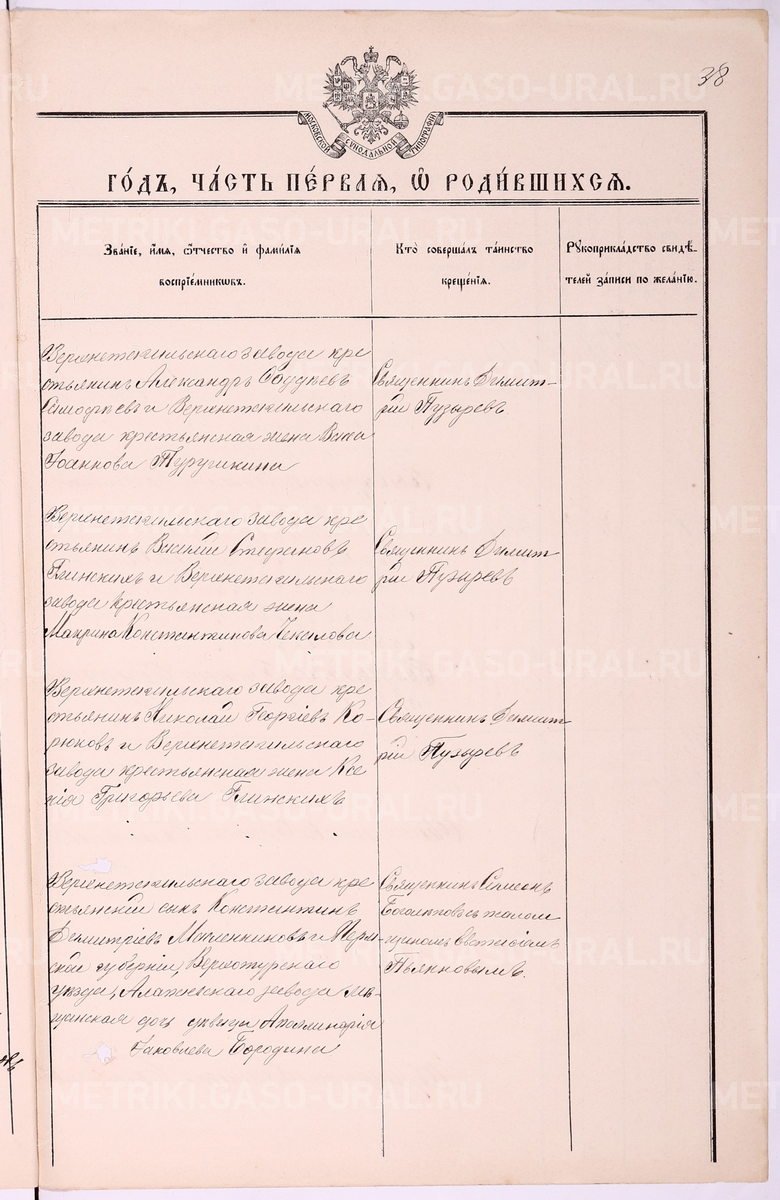 38
МОСКОВСКОЙ СѴНОДАЛЬНОЙ ТИПОГРАФІИ
ГО́ДЪ, ЧА́СТЬ ПЕ́РВАЯ, Ѽ РОДИ́ВШИХСЯ.
Зва́нїе, и҆́мя, ѻ҆́тчество и҆ фами́лїя
воспрїе́мникѡвъ.
Кто̀ соверша́лъ та́инство
креще́нїя.
Рꙋкоприкла́дство свидѣ́-
телей за́писи по жела́нїю.
Верхнетагильскаго завода кре
стьянинъ Александръ
и Верхнетагильскаго
завода крестьянская жена
Іоаннова Туругикина
Священникъ Димит-
рій Пузыревъ.
Верхнетагильскаго завода кре
стьянинъ Василій Стефановъ
Глинскихъ и Верхнетагильскаго
завода крестьянская жена
Макрина Константинова
Священникъ Димит
рій Пузыревъ
Верхнетагильскаго завода кре
стьянинъ Николай Георгіевъ Ко-
рюковъ и Верхнетагильскаго
завода крестьянская жена Ксе
нія Григорьева Глинскихъ
Священникъ Димит
рій Пузыревъ
Верхнетагильскаго завода кре
стьянскій сынъ Константинъ
Димитріевъ Масленниковъ и Перм
ской губерніи, Верхотурскаго
уѣзда, завода
дочь дѣвица Аполлинарія
Іаковлева Бородина
Священникъ Симеонъ
Богалтовъ съ псалом
щикомъ Евгеніемъ
Пьянковымъ.
METRIKI.GASO-URAL.RU